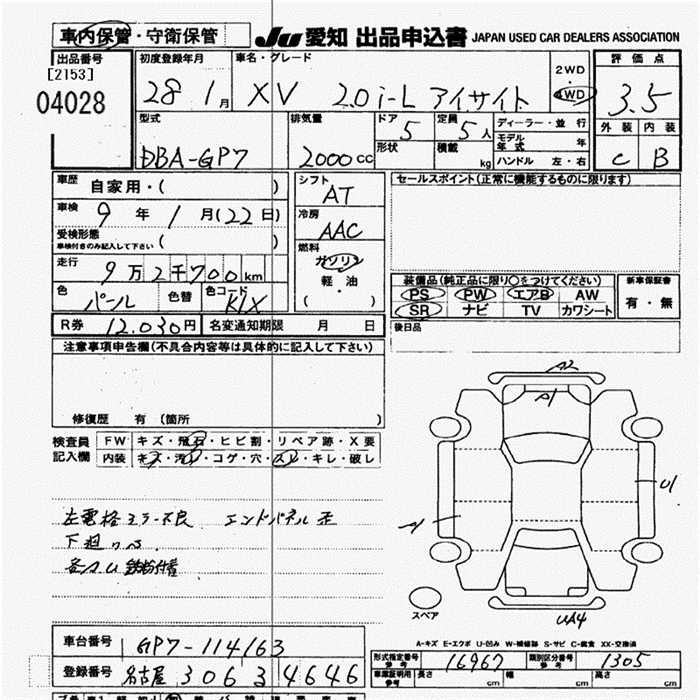 車内保管・守衛保管 JU 愛知 出品申込書 JAPAN USED CAR DEALERS ASSOCIATION
出品番号 [2153] 04028
初度登録年月 28 1月
車名・グレード XV 2.0i-L アイサイト
2WD・4WD
評価点 3.5
型式 DBA-GP7
排気量 2000cc
ドア 5
形状
定員 5人
積載 kg
ディーラー・並行
モデル年式 年
ハンドル 左・右
外装 C
内装 B
車歴 自家用・( )
車検 9年 1月(22日)
受検形態 車検付きのみ記入して下さい ( )
走行 9万2千700km
色 パール 色替 色コード K1X
R券 12.030円 名変通知期限 月 日
シフト AT
冷房 AAC
燃料 ガソリン 軽油・( )
セールスポイント(正常に機能するものに限ります)
装備品(純正品に限り○をつけてください)
PS PW エアB AW
SR ナビ TV カワシート
新車保証書 有・無
後日品
注意事項申告欄(不具合内容等は具体的に記入して下さい)
修復歴 有 (箇所
検査員記入欄
FW キズ・飛石・ヒビ割・リペア跡・X要
内装 キズ・汚れ・コゲ・穴・スレ・キレ・破レ
左電格ミラー不良 エンドパネル歪
下廻りサビ
鉄粉付着
A2
A1
U1
UA4
スペア
A-キズ E-エクボ U-凹み W-補修跡 S-サビ C-腐食 XX-交換済
車台番号 GP7-114163
登録番号 名古屋 306 3 4646
形式指定番号 参考 16967 類別区分番号 参考 1305
車庫証明用 参考 長さ cm 幅 cm 高さ cm